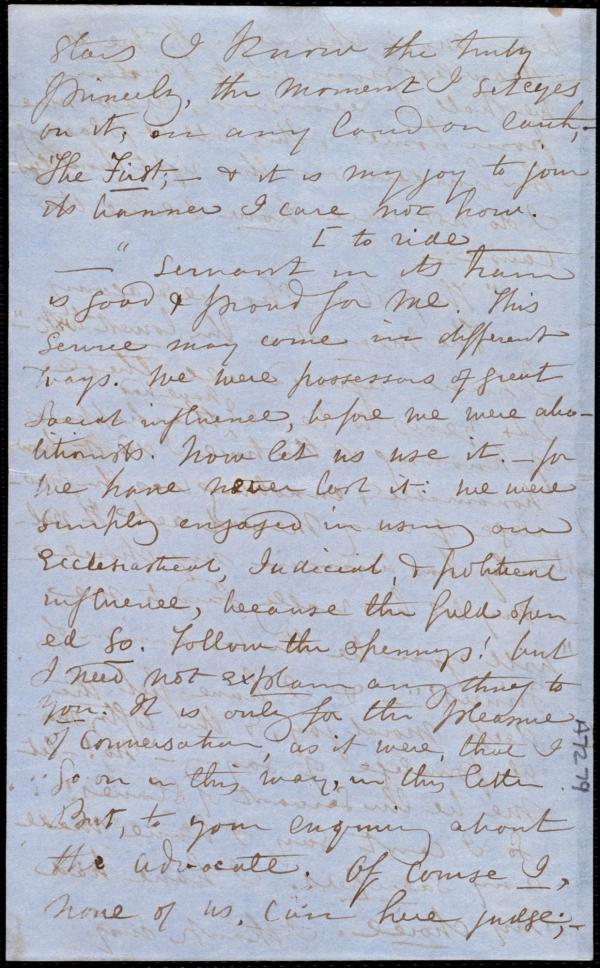 stars I know the truly
princely, the moment I set eyes
on it, on any land on earth, –
The First; – & it is my joy to join
its banner I care not how.
[ to ride
— " Servant in its train
is good & proud for me. This
Service may come in different
ways. We were possessors of great
Social influence, before we were abo-
litionists. Now let us use it. – for
we have never lost it: we were
simply engaged in using our
Ecclesiastical, Judicial, & political
influence, because the field open
ed so. Follow the openings! but
I need not explain any thing to
you. It is only for the pleasure
of Conversation, as it were, that I
go on in this way, in this letter.
But, to your enquiry about
the advocate. Of course I,
none of us, can here judge; –
A7279